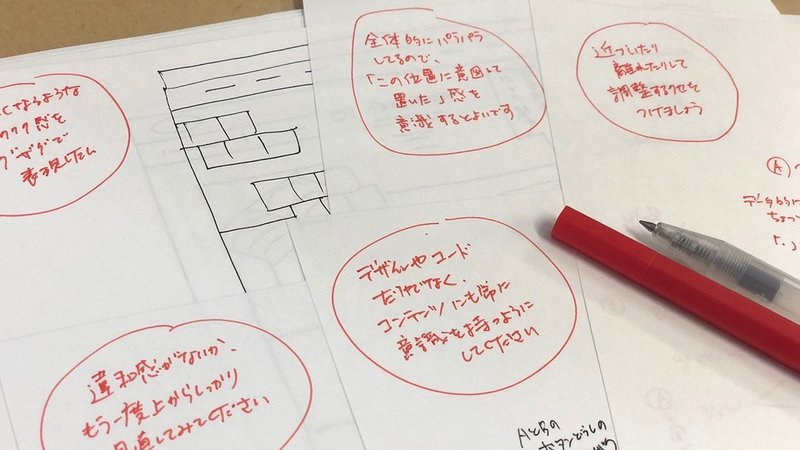 全体的にバラバラ
してるので、
「この位置に意図して
置いた」感を
意識するとよいです
近づいたり
離れたりして
調整するクセを
つけましょう
なるような
ワクワク感を
デザインで
表現したい
デザインやコード
だけでなく、
コンテンツにも常に
意識を持つように
してください
違和感がないか、
もう一度上からしっかり
見直してみてください
Ⓐ
ちょっ
AとBの
ボタンどうしの